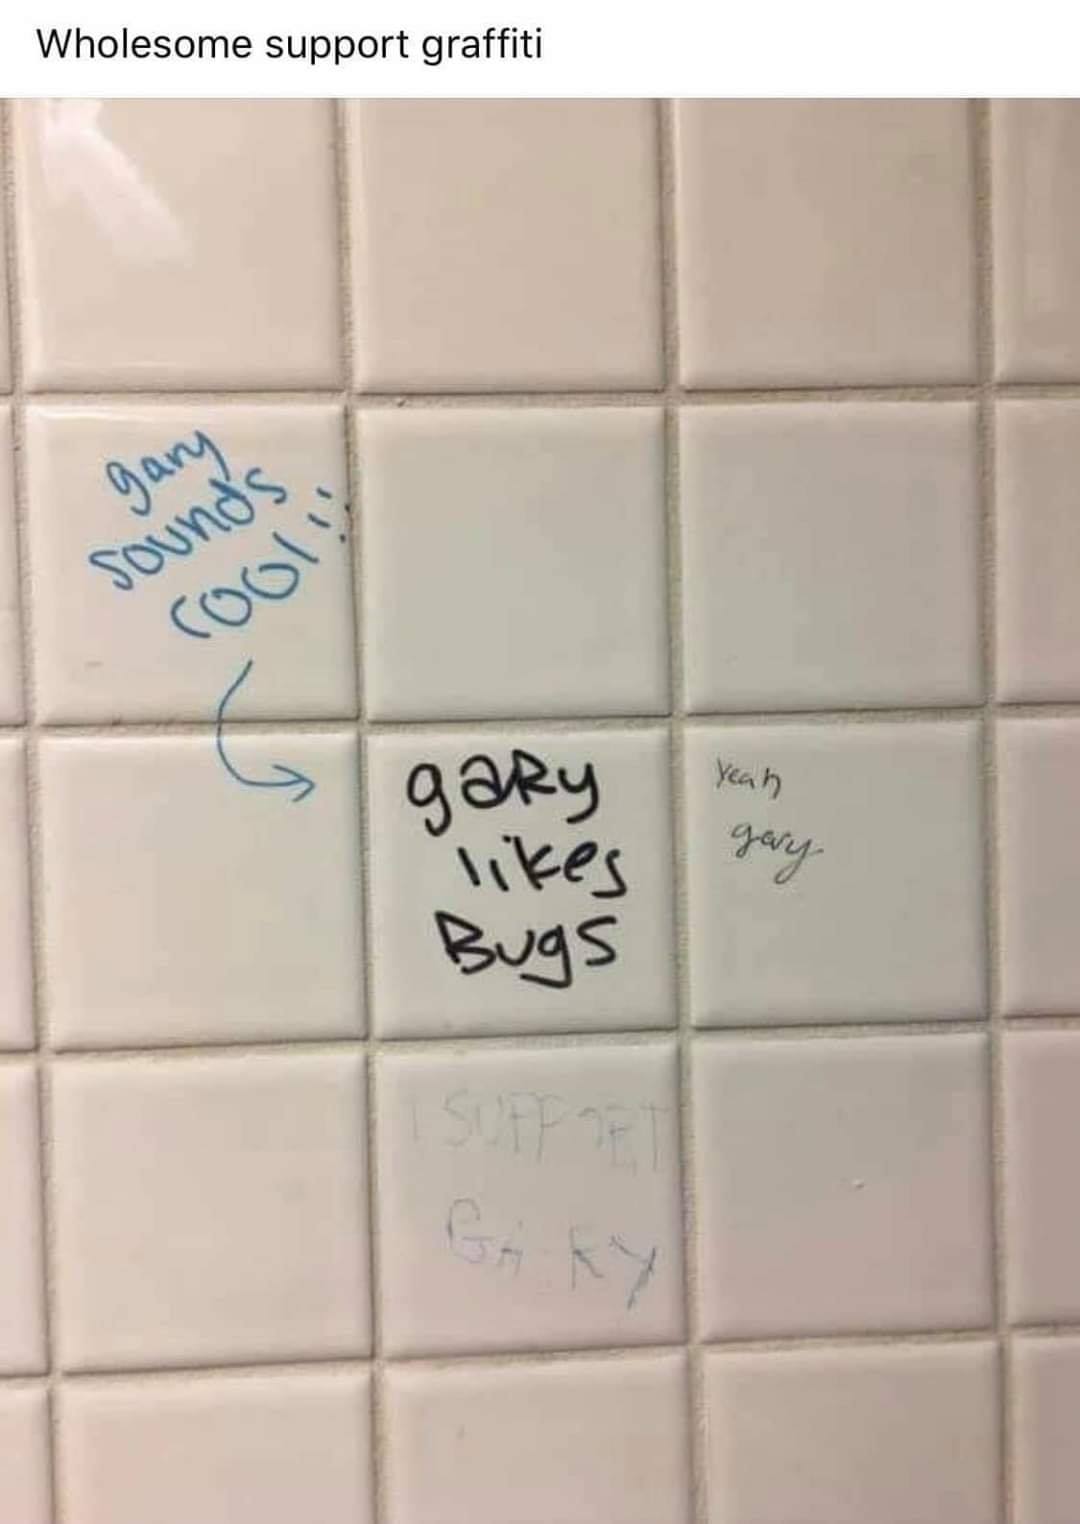 Wholesome support graffiti
gary
sounds
cool!!
gaRy
likes
Bugs
Yeah
gary
I SUPPORT
GARY